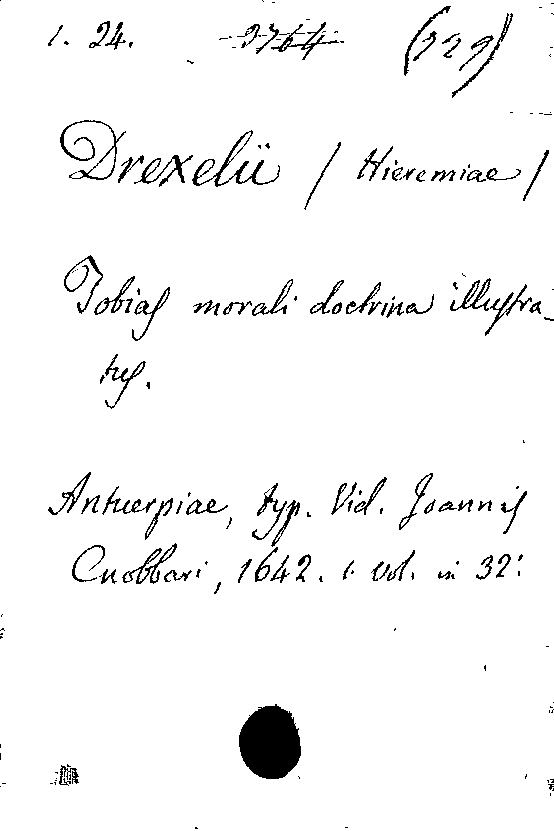 1. 24. 3764 (729)
Drexelii / Hieremiae /
Tobias morali doctrina illustra-
tus.
Antuerpiae, typ. Vid. Joannis
Cnobbari, 1642. 1 vol. in 32.